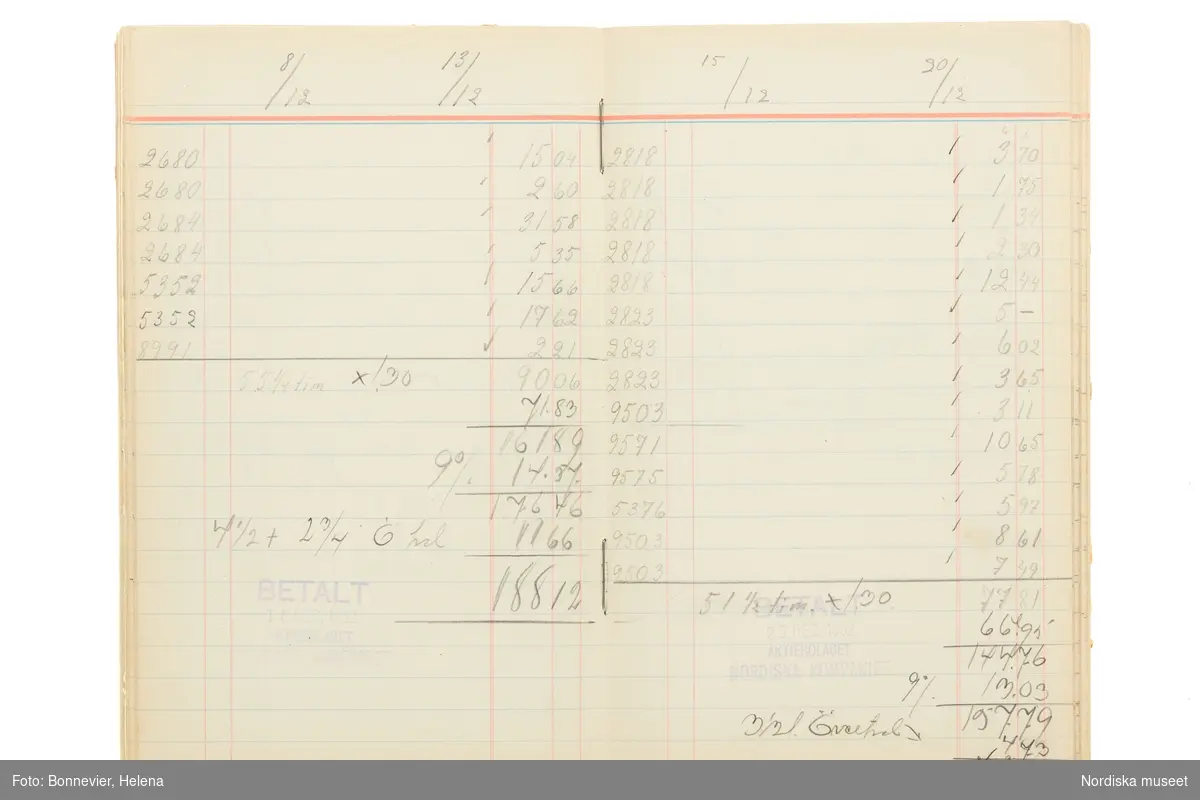 8/12 13/12
2680 15 04
2680 2 60
2684 31 58
2684 5 35
5352 15 66
5352 17 62
8991 2 21
55 1/4 tim x 1.30 90 06
71.83
161 89
9% 14.57
176 46
7 1/2 + 2 3/4 Ö 11 66
188 12
BETALT
15/12 20/12
2818 3 70
2818 1 75
2818 1 34
2818 2 30
2818 12 44
2823 5 —
2823 6 02
2823 3 65
9503 3 11
9571 10 65
9575 5 78
5376 5 97
9503 8 61
9503 7 49
51 1/2 tim. x 1.30 77 81
66.95
144.76
9% 13.03
157.79
4 73
BETALT
23 DEC 1932
AKTIEBOLAGET
NORDISKA KOMPANIET
Foto: Bonnevier, Helena
Nordiska museet